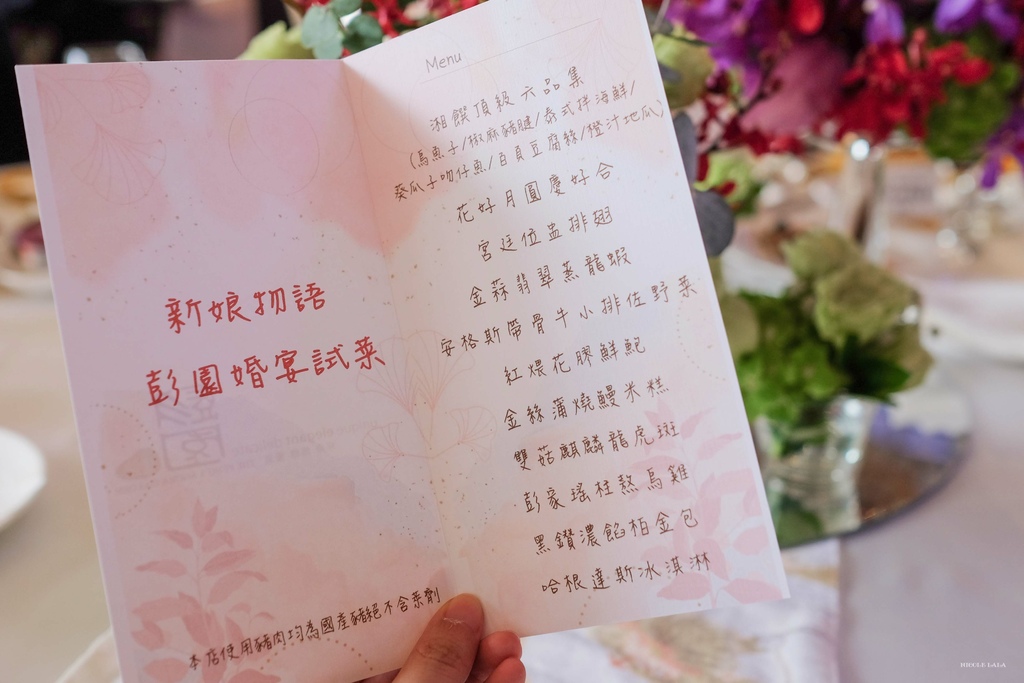 新娘物語
彭園婚宴試菜
本店使用豬肉均為國產豬絕不含萊劑
Menu
湘饌頂級六品集
(烏魚子/椒麻豬腱/泰式拌海鮮/
葵瓜子吻仔魚/百頁豆腐絲/橙汁地瓜)
花好月圓慶好合
宮廷位盅排翅
金蒜翡翠蒸龍蝦
安格斯帶骨牛小排佐野菜
紅煨花膠鮮鮑
金絲蒲燒鰻米糕
雙菇麒麟龍虎斑
彭家瑤柱熬烏雞
黑鑽濃餡柏金包
哈根達斯冰淇淋
NICOLE LALA